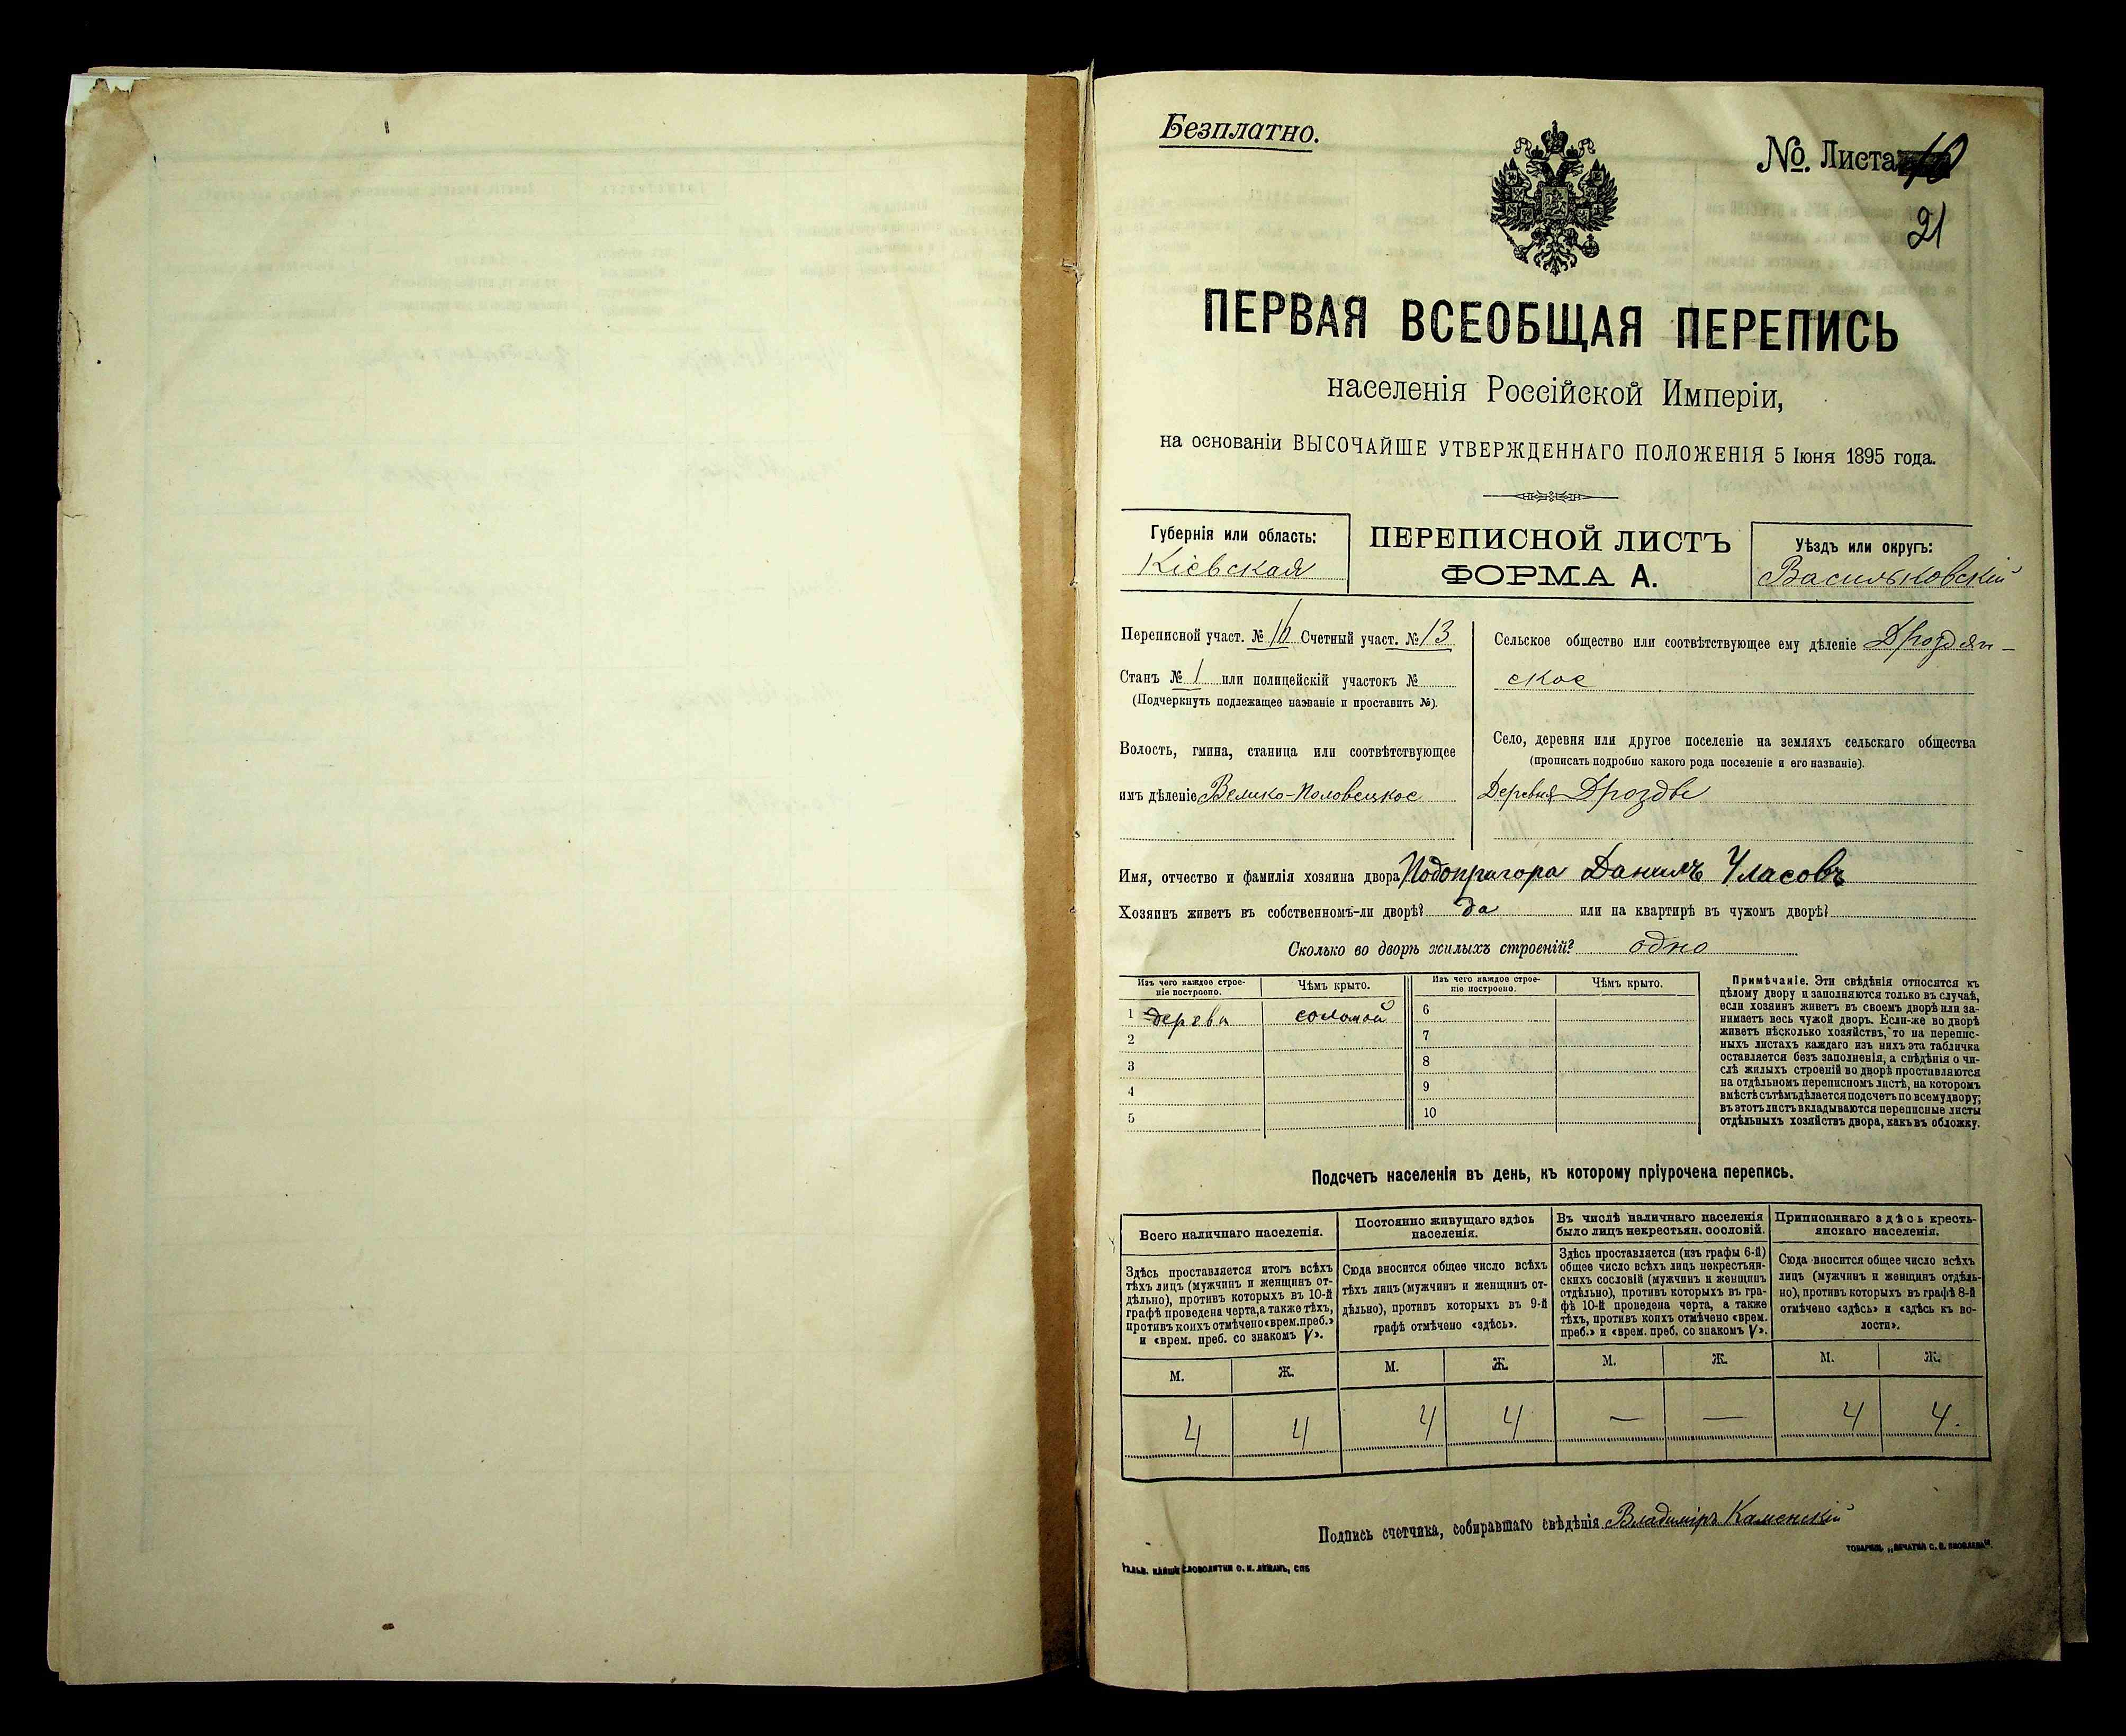 Безплатно.
№. Листа
21
ПЕРВАЯ ВСЕОБЩАЯ ПЕРЕПИСЬ
населенія Россійской Имперіи,
на основаніи ВЫСОЧАЙШЕ УТВЕРЖДЕННАГО ПОЛОЖЕНІЯ 5 Іюня 1895 года.
Губернія или область:
Кіевская
ПЕРЕПИСНОЙ ЛИСТЪ
ФОРМА А.
Уѣздъ или округъ:
Васильковскій
Переписной участ. № 16 Счетный участ. № 13
Станъ № 1 или полицейскій участокъ №
(Подчеркнуть подлежащее названіе и проставить №).
Волость, гмина, станица или соотвѣтствующее
имъ дѣленіе Велико-Половецкое
Сельское общество или соотвѣтствующее ему дѣленіе Дроздян-
ское
Село, деревня или другое поселеніе на земляхъ сельскаго общества
(прописать подробно какого рода поселеніе и его названіе).
Деревня Дрозды
Имя, отчество и фамилія хозяина двора Подопригора Данилъ Уласовъ
Хозяинъ живетъ въ собственномъ-ли дворѣ? да или на квартирѣ въ чужомъ дворѣ?
Сколько во дворѣ жилыхъ строеній? одно
Изъ чего каждое строе-
ніе построено.
Чѣмъ крыто.
Изъ чего каждое строе-
ніе построено.
Чѣмъ крыто.
1 дерева соломой 6
2 7
3 8
4 9
5 10
Примѣчаніе. Эти свѣдѣнія относятся къ
цѣлому двору и заполняются только въ случаѣ,
если хозяинъ живетъ въ своемъ дворѣ или за-
нимаетъ весь чужой дворъ. Если-же во дворѣ
живетъ нѣсколько хозяйствъ, то на перепис-
ныхъ листахъ каждаго изъ нихъ эта табличка
оставляется безъ заполненія, а свѣдѣнія о чи-
слѣ жилыхъ строеній во дворѣ проставляются
на отдѣльномъ переписномъ листѣ, на которомъ
вмѣстѣ съ тѣмъ дѣлается подсчетъ по всему двору;
въ этотъ листъ вкладываются переписные листы
отдѣльныхъ хозяйствъ двора, какъ въ обложку.
Подсчетъ населенія въ день, къ которому пріурочена перепись.
Всего наличнаго населенія.
Здѣсь проставляется итогъ всѣхъ
тѣхъ лицъ (мужчинъ и женщинъ от-
дѣльно), противъ которыхъ въ 10-й
графѣ проведена черта, а также тѣхъ,
противъ коихъ отмѣчено «врем. преб.»
и «врем. преб. со знакомъ V».
Постоянно живущаго здѣсь
населенія.
Сюда вносится общее число всѣхъ
тѣхъ лицъ (мужчинъ и женщинъ от-
дѣльно), противъ которыхъ въ 9-й
графѣ отмѣчено «здѣсь».
Въ числѣ наличнаго населенія
было лицъ некрестьян. сословій.
Здѣсь проставляется (изъ графы 6-й)
общее число всѣхъ лицъ некрестьян-
скихъ сословій (мужчинъ и женщинъ
отдѣльно), противъ которыхъ въ гра-
фѣ 10-й проведена черта, а также
тѣхъ, противъ коихъ отмѣчено «врем.
преб.» и «врем. преб. со знакомъ V».
Приписаннаго здѣсь кресть-
янскаго населенія.
Сюда вносится общее число всѣхъ
лицъ (мужчинъ и женщинъ отдѣль-
но), противъ которыхъ въ графѣ 8-й
отмѣчено «здѣсь» и «здѣсь къ во-
лости».
М. Ж. М. Ж. М. Ж. М. Ж.
4 4 4 4 — — 4 4.
Подпись счетчика, собиравшаго свѣдѣнія Владиміръ Каменскій
СЛОВОЛИТНИ О. И. ЛЕМАНЪ, СПБ
ТОВАРИЩ. „ПЕЧАТНЯ С. П. ЯКОВЛЕВА".